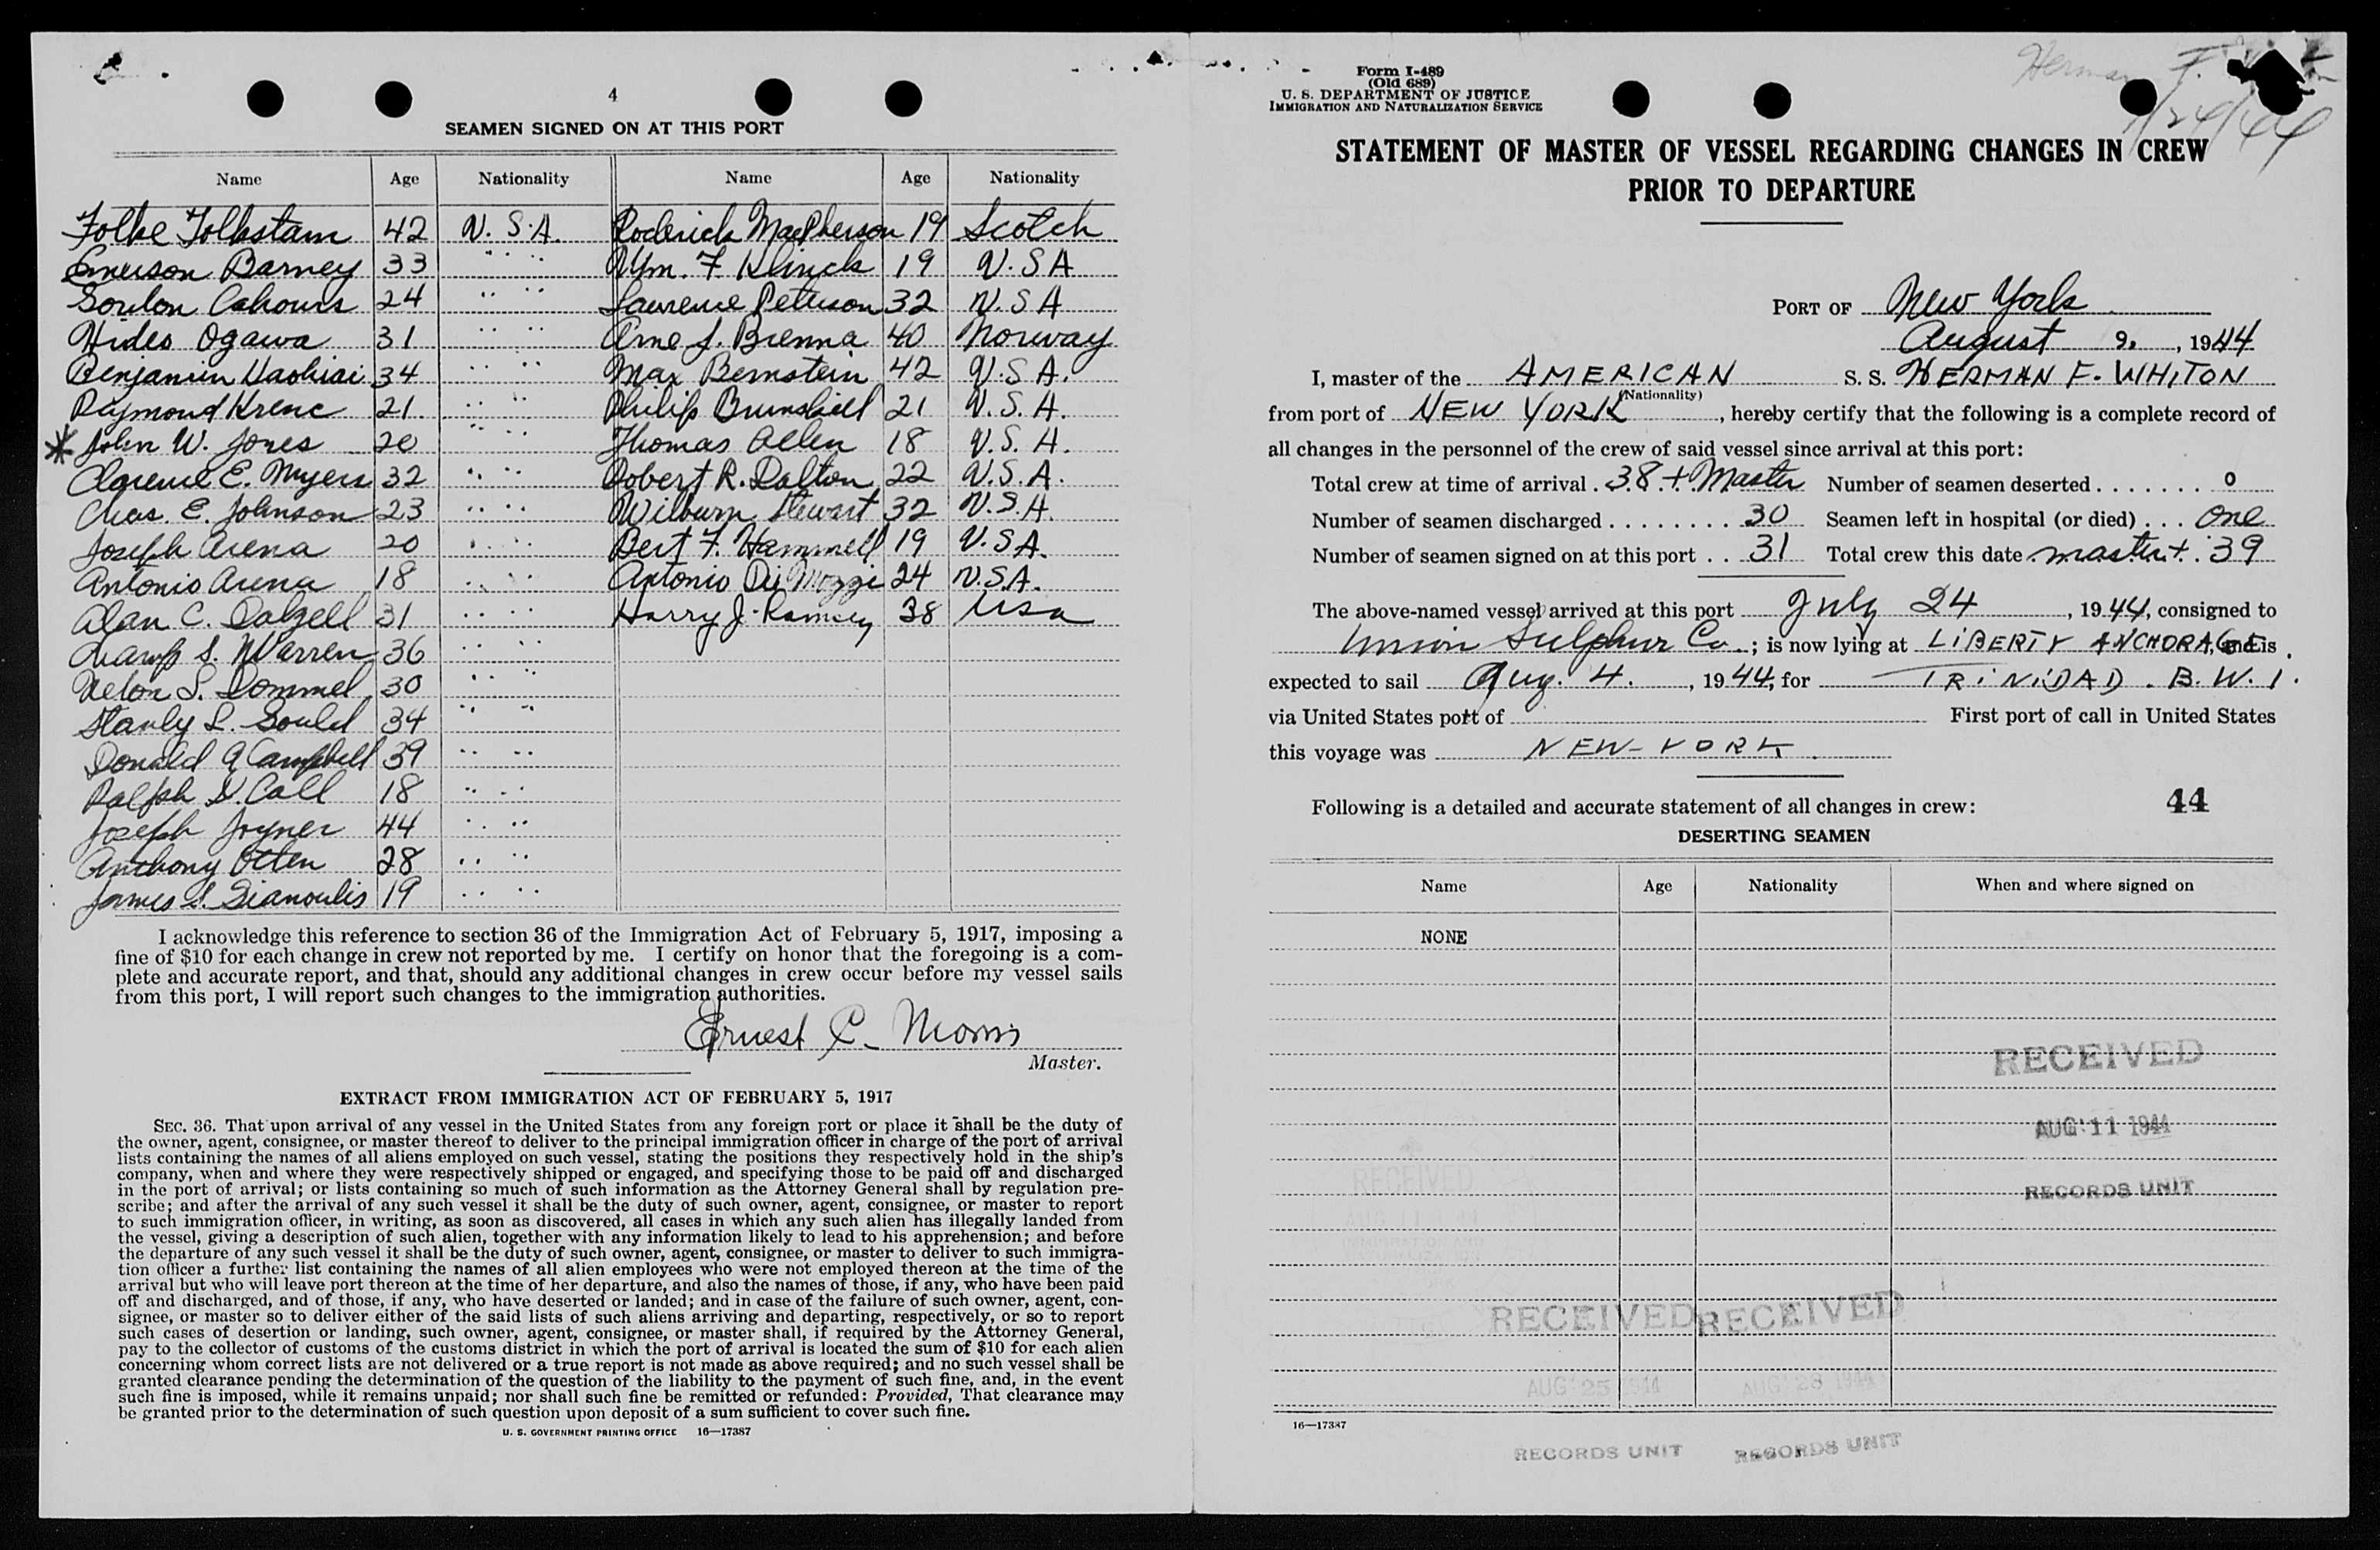 4
SEAMEN SIGNED ON AT THIS PORT
Name Age Nationality Name Age Nationality
Folke Folkstam 42 U.S.A. Roderick MacPherson 19 Scotch
Emerson Barney 33 " " Wm. F. Klinck 19 U.S.A
Gordon Cahours 24 " " Laurence Peterson 32 U.S.A
Hideo Ogawa 31 " " Arne J. Brenna 40 Norway
Benjamin 34 " " Max Bernstein 42 U.S.A.
Raymond Krenc 21. " " Philip 21 U.S.A.
* John W. Jones 20 " " Thomas Allen 18 U.S.A.
Clarence E. Myers 32 " " Robert R. Dalton 22 U.S.A.
Chas. E. Johnson 23 " " Wilburn Stewart 32 U.S.A.
Joseph Arena 20 " " Bert F. Hammell 19 U.S.A.
Antonio Arena 18 " " Antonio Di Mozzi 24 U.S.A.
Alan C. Dalzell 31 " " Harry J. Ramsey 38 Usa
S. Warren 36 " "
S. Dommel 30 " "
Stanly L. Gould 34 " "
Donald A Campbell 39 " "
Ralph D. Call 18 " "
Joseph Joyner 44 " "
Anthony Otten 28 " "
James S. Gianoulis 19 " "
I acknowledge this reference to section 36 of the Immigration Act of February 5, 1917, imposing a
fine of $10 for each change in crew not reported by me. I certify on honor that the foregoing is a com-
plete and accurate report, and that, should any additional changes in crew occur before my vessel sails
from this port, I will report such changes to the immigration authorities.
Ernest C. Morris
Master.
EXTRACT FROM IMMIGRATION ACT OF FEBRUARY 5, 1917
SEC. 36. That upon arrival of any vessel in the United States from any foreign port or place it shall be the duty of
the owner, agent, consignee, or master thereof to deliver to the principal immigration officer in charge of the port of arrival
lists containing the names of all aliens employed on such vessel, stating the positions they respectively hold in the ship's
company, when and where they were respectively shipped or engaged, and specifying those to be paid off and discharged
in the port of arrival; or lists containing so much of such information as the Attorney General shall by regulation pre-
scribe; and after the arrival of any such vessel it shall be the duty of such owner, agent, consignee, or master to report
to such immigration officer, in writing, as soon as discovered, all cases in which any such alien has illegally landed from
the vessel, giving a description of such alien, together with any information likely to lead to his apprehension; and before
the departure of any such vessel it shall be the duty of such owner, agent, consignee, or master to deliver to such immigra-
tion officer a further list containing the names of all alien employees who were not employed thereon at the time of the
arrival but who will leave port thereon at the time of her departure, and also the names of those, if any, who have been paid
off and discharged, and of those, if any, who have deserted or landed; and in case of the failure of such owner, agent, con-
signee, or master so to deliver either of the said lists of such aliens arriving and departing, respectively, or so to report
such cases of desertion or landing, such owner, agent, consignee, or master shall, if required by the Attorney General,
pay to the collector of customs of the customs district in which the port of arrival is located the sum of $10 for each alien
concerning whom correct lists are not delivered or a true report is not made as above required; and no such vessel shall be
granted clearance pending the determination of the question of the liability to the payment of such fine, and, in the event
such fine is imposed, while it remains unpaid; nor shall such fine be remitted or refunded: Provided, That clearance may
be granted prior to the determination of such question upon deposit of a sum sufficient to cover such fine.
U. S. GOVERNMENT PRINTING OFFICE 16—17387
Form I-489
(Old 689)
U. S. DEPARTMENT OF JUSTICE
IMMIGRATION AND NATURALIZATION SERVICE
Herman F.
/24/44
STATEMENT OF MASTER OF VESSEL REGARDING CHANGES IN CREW
PRIOR TO DEPARTURE
PORT OF New York
August 9, 1944
I, master of the AMERICAN S. S. HERMAN F. WHITON
(Nationality)
from port of NEW YORK, hereby certify that the following is a complete record of
all changes in the personnel of the crew of said vessel since arrival at this port:
Total crew at time of arrival . 38 + Master Number of seamen deserted . . . . . . . 0
Number of seamen discharged . . . . . . . . 30 Seamen left in hospital (or died) . . . one
Number of seamen signed on at this port . . 31 Total crew this date master + 39
The above-named vessel arrived at this port July 24, 1944, consigned to
Union Sulphur Co.; is now lying at LIBERTY ANCHORAGE, and is
expected to sail Aug. 4., 1944, for TRINIDAD. B.W.I.
via United States port of First port of call in United States
this voyage was NEW-YORK
Following is a detailed and accurate statement of all changes in crew: 44
DESERTING SEAMEN
Name Age Nationality When and where signed on
NONE
RECEIVED
AUG 11 1944
RECORDS UNIT
RECEIVED
AUG 11 1944
IMMIGRATION AND
RECEIVED RECEIVED
AUG 25 1944 AUG 28 1944
16—17387
RECORDS UNIT RECORDS UNIT